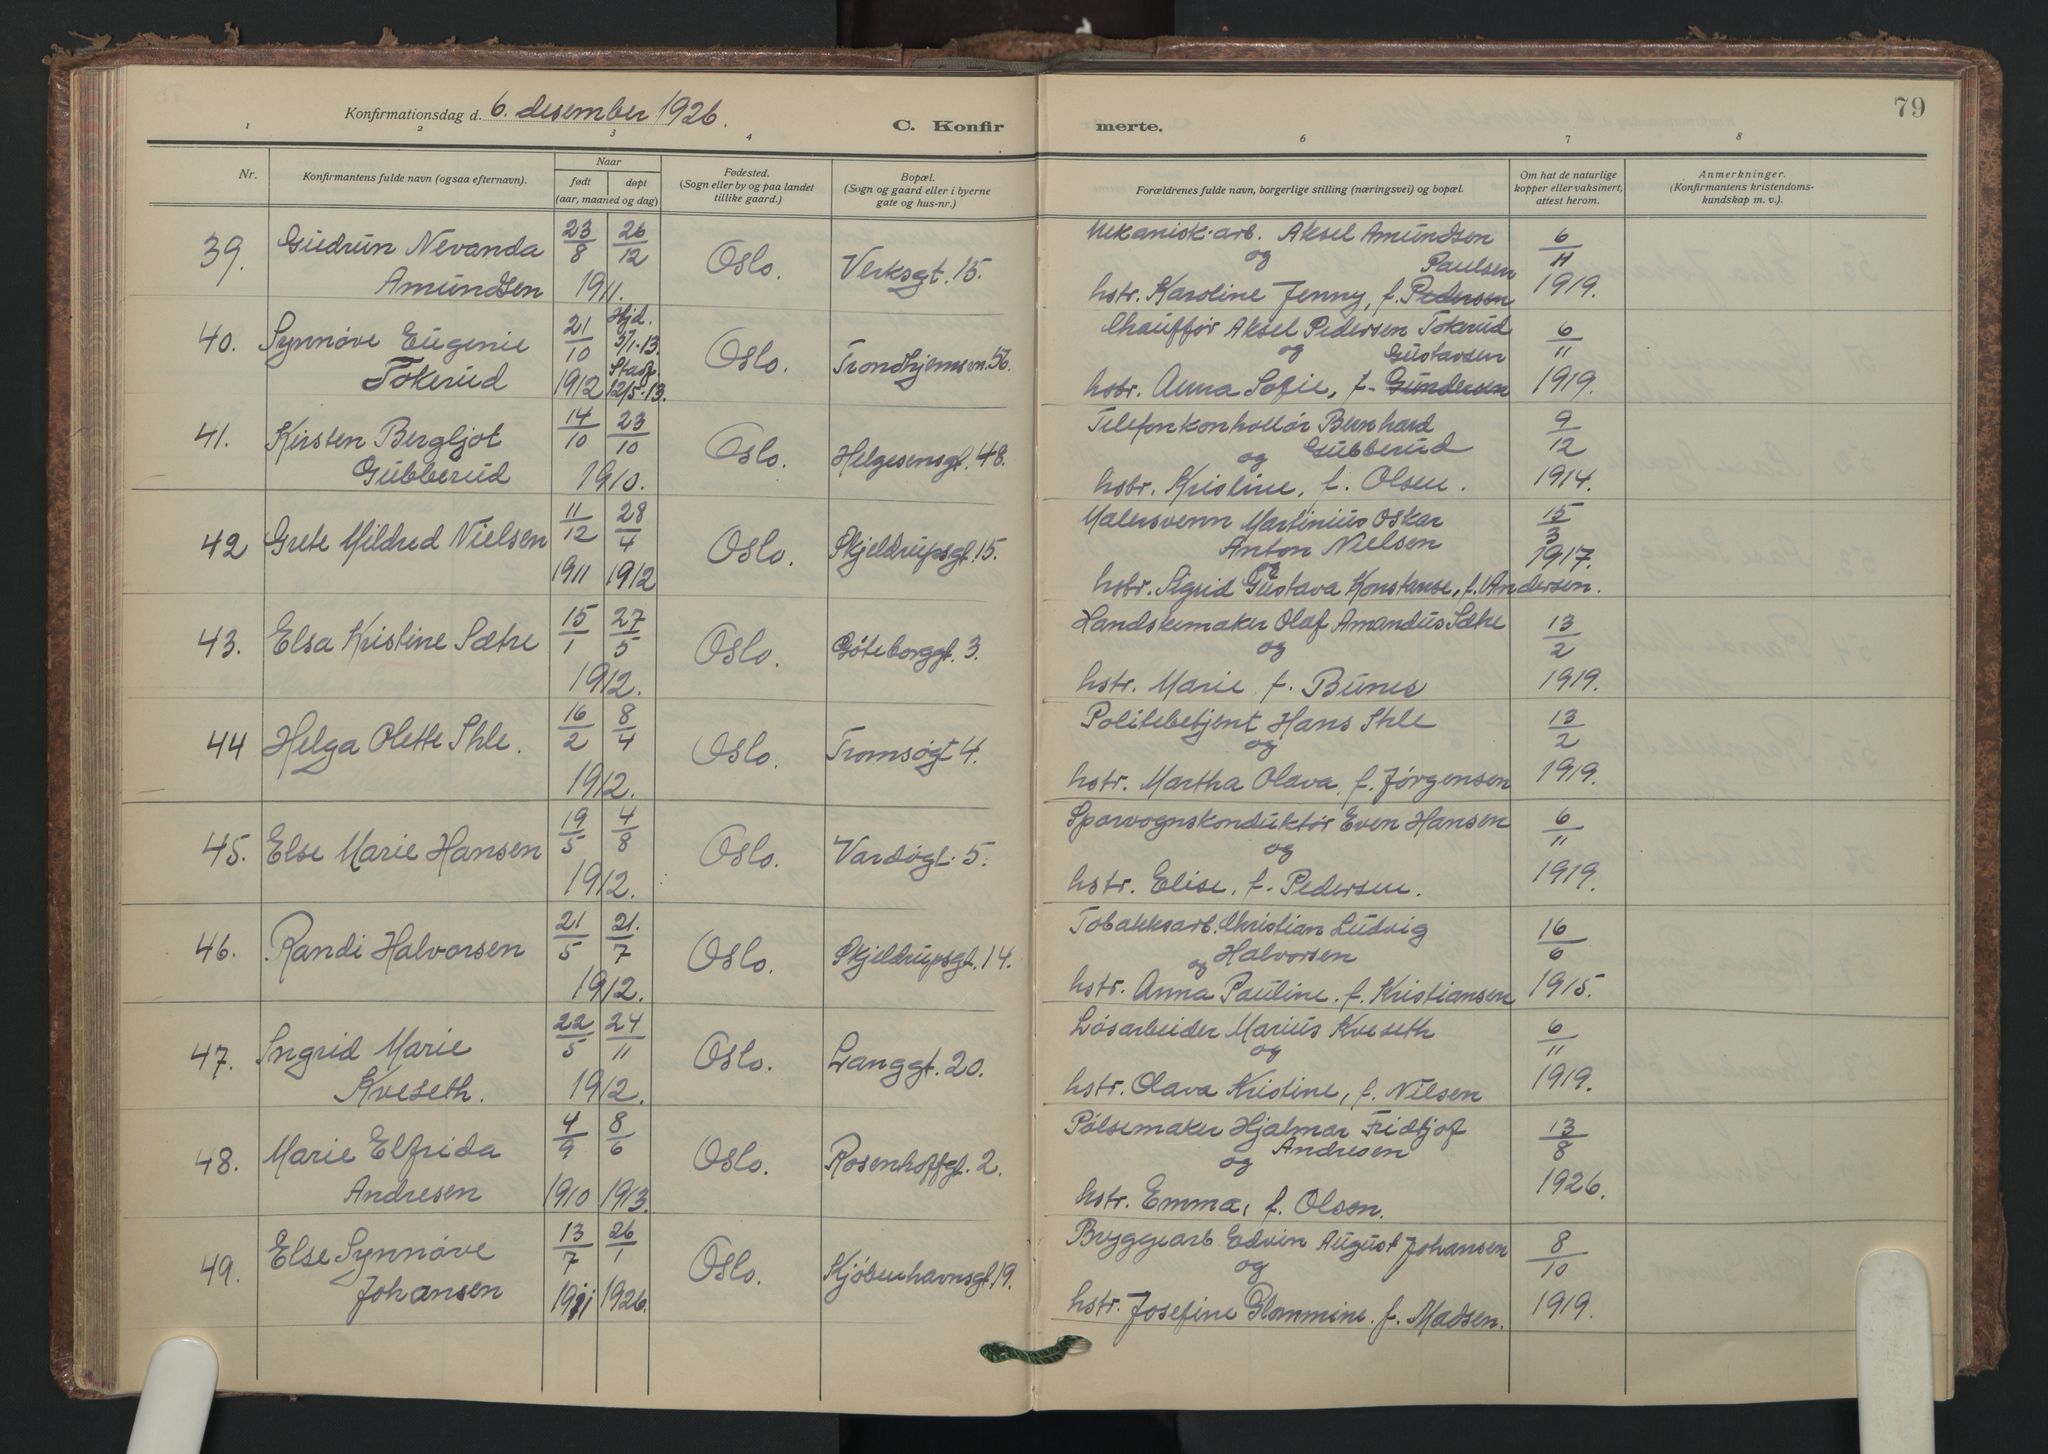 79
Konfirmationsdag d. 6. desember 1926.
C. Konfirmerte.
1 2 3 4 6 7 8
Nr.
Konfirmantens fulde navn (ogsaa efternavn).
Naar
født døpt
(aar, maaned og dag)
Fødested.
(Sogn eller by og paa landet
tillike gaard.)
Bopæl.
(Sogn og gaard eller i byerne
gate og hus-nr.)
Forældrenes fulde navn, borgerlige stilling (næringsvei) og bopæl.
Om hat de naturlige
kopper eller vaksinert,
attest herom.
Anmerkninger.
(Konfirmantens kristendoms-
kundskap m. v.).
39. Gudrun Nevanda
Amundsen
23/8 26/12
1911.
Oslo.
Verksgt. 15.
Mekanisk. arb. Aksel Amundsen
og Paulsen
hstr. Karoline Jenny, f. Pedersen
6/11
1919.
40. Synnøve Eugenie
Tokerud
21/10
1912
Hjd.
3/1-13.
Stadf.
12/5-13.
Oslo.
Trondhjemsen. 56.
Chauffør Aksel Pedersen Tokerud
og Gustavsen
hstr. Anna Sofie, f. Gundersen
6/11
1919.
41. Kirsten Bergljot
Gubberud
14/10 23/10
1910.
Oslo.
Helgesensgt. 48.
Telefonkontrollør Bernhard
og Gubberud
hstr. Kristine, f. Olsen.
9/12
1914.
42 Grete Mildred Nielsen
11/12 28/4
1911 1912
Oslo.
Skjeldrupsgt. 15.
Malersvenn Martinius Oskar
Anton Nielsen
og
hstr. Sigrid Gustava Konstanse, f. Andersen.
15/3
1917.
43. Elsa Kristine Sætre
15/1 27/5
1912.
Oslo.
Gøteborggt. 3.
Handskemaker Olaf Amandus Sætre
og
hstr. Marie f. Bunes
13/2
1919.
44 Helga Olette Ihle.
16/2 8/4
1912.
Oslo.
Tromsøgt 4.
Politibetjent Hans Ihle
og
hstr. Martha Olava, f. Jørgensen
13/2
1919.
45. Else Marie Hansen
19/5 4/8
1912.
Oslo.
Vardøgt. 5.
Sporvognskonduktør Even Hansen
og
hstr. Elise, f. Pedersen.
6/11
1919.
46. Randi Halvorsen
21/5 21./7
1912.
Oslo.
Skjeldrupsgt. 14.
Tobakksarb. Christian Ludvig
og Halvorsen
hstr. Anna Pauline. f. Kristiansen
16/6
1915.
47. Ingrid Marie
Kveseth.
22/5 24/11
1912.
Oslo.
Langgt. 20.
Løsarbeider Marius Kveseth
og
hstr. Olava Kristine, f. Nilsen
6/11
1919.
48. Marie Elfrida
Andresen
4/9 8/6
1910 1913.
Oslo.
Rosenhoffgt. 2.
Pølsemaker Hjalmar Fridtjof
og Andresen
hstr. Emma, f. Olsen.
13/8
1926.
49. Else Synnøve
Johansen
13/7 26/1
1911 1926.
Oslo.
Kjøbenhavnsgt. 19.
Bryggearb Edvin August Johansen
og
hstr. Josefine Glommine. f. Madsen.
8/10
1919.